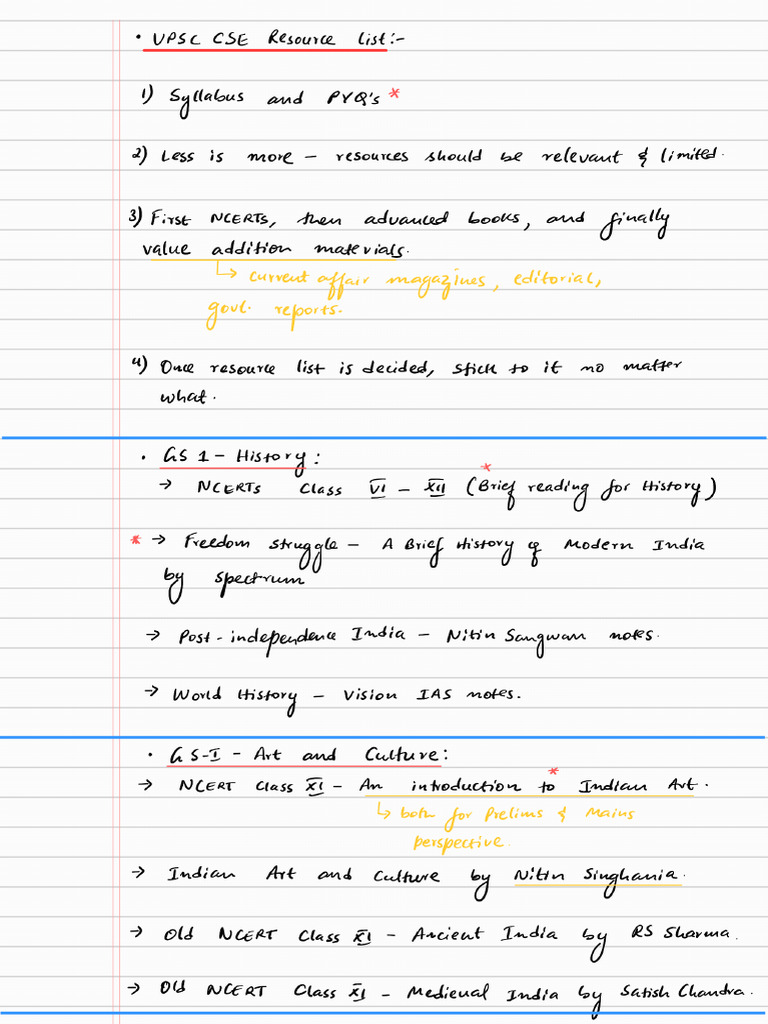 • UPSC CSE Resource list:-
1) Syllabus and PYQ's *
2) Less is more – resources should be relevant & limited.
3) First NCERTs, then advanced books, and finally
value addition materials.
↳ current affair magazines, editorial,
govt. reports.
4) Once resource list is decided, stick to it no matter
what.
• GS 1 – History:
→ NCERTs Class VI – XII (Brief reading for History) *
* → Freedom struggle – A Brief History of Modern India
by spectrum
→ Post-independence India – Nitin Sangwan notes.
→ World History – Vision IAS notes.
• GS-I – Art and Culture:
→ NCERT Class XI – An introduction to Indian Art. *
↳ both for Prelims & Mains
perspective.
→ Indian Art and Culture by Nitin Singhania.
→ Old NCERT Class XI – Ancient India by RS Sharma.
→ Old NCERT Class XI – Medieval India by Satish Chandra.